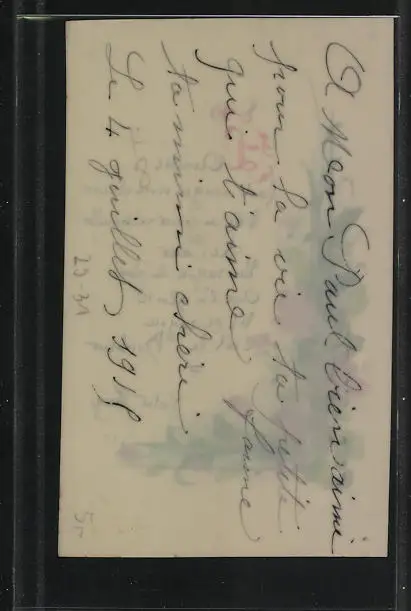 A Mon Paul bien aimé
pour la vie ta petite
femme
qui t'aime
ta mimi chéri
Le 4 juillet 1918
29-31
5-